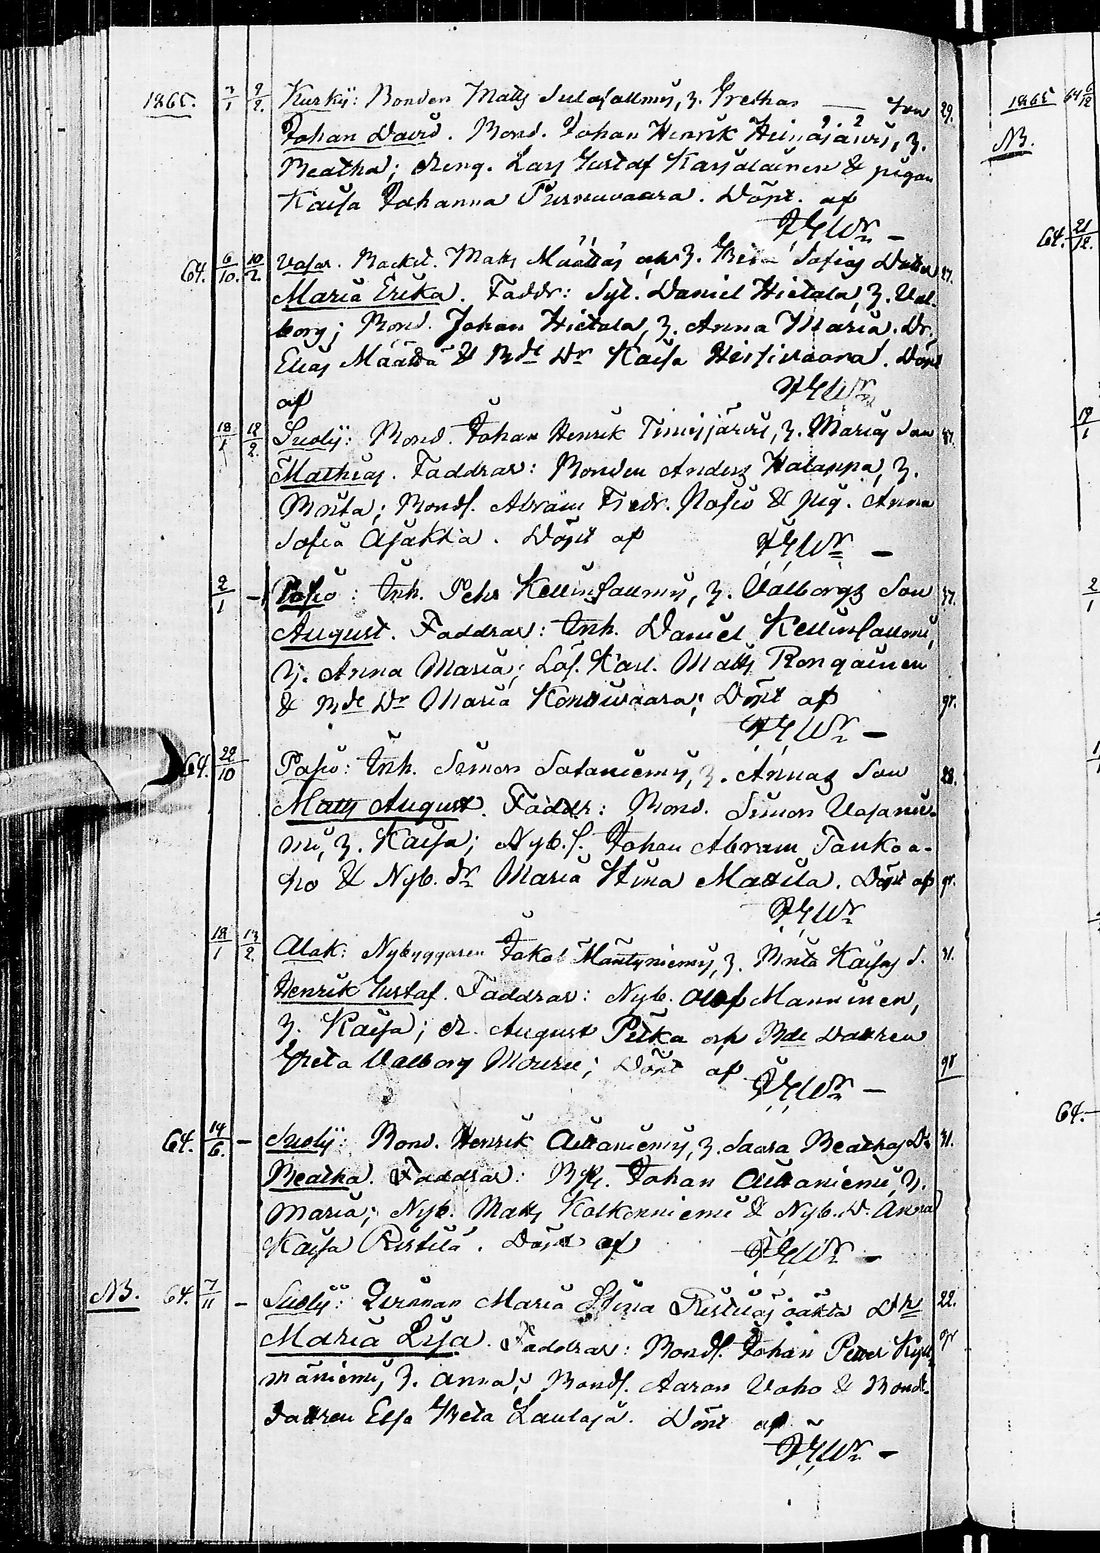 1865. 7/1 9/2 Kurkij: Bonden Matts Sulasalmis, h. Grethas — Son 29.
Johan David. Bond. Johan Henrik Heinäjärvi, h.
Beatha; dreng. Lars Gustaf Karjalainen & pigan
Kaisa Johanna Pirnuvaara. Döpt. af
64. 6/10 10/2 Backst. Matts Määttäs och h. Sofias Dotter 27.
Maria Erika. Faddr: Syt. Daniel Hietala, h. Val-
borg; Bond. Johan Hietala, h. Anna Maria. Dr.
Elias Määttä & Bde Dr Kaisa. Döpt
af
18/1 12/2 Suolij: Bond. Johan Henrik Timisjärvi, h. Marias Son
Mathias. Faddrar: Bonden Anders Halappa, h.
Brita; Bonds. Abram Fredr. Posio & pig. Anna
Sofia Ajakka. Döpt af
2/1 — Posio: Inh. Pehr Kellinsalmis, h. Valborgs Son 37.
August. Faddrar: Inh. Daniel Kellinsalmi,
h. Anna Maria; Lös. Karl. Matts Rongainen
& Bde Dr Maria Kondivaara; Döpt af gr.
64. 22/10 Posio: Inh. Simon Sataniemis, h. Annas Son 28.
Matts August. Faddr: Bond. Simon Vasanie-
mi, h. Kaisa; Nyb.s. Johan Abram Tankoa-
ho & Nyb. dr Maria Stina Mattila. Döpt af gr.
18/1 13/2 Alak: Nybyggaren Jakob Mäntyniemis, h. Brita Kaisas S. 31.
Henrik Gustaf. Faddrar: Nyb. Olof Manninen,
h. Kaisa; d. August Pitkä och Bde Dottren
Greta Valborg Mouru; Döpt af gr
64. 14/6 — Suolij: Bond. Henrik Aittaniemis, h. Saara Beathas Dr 31.
Beatha. Faddrar: Johan Aittaniemi, h.
Maria; Nyb. Matts Kolkonniemi & Nyb. D. Anna
Kaisa Ristilä. Döpt af
NB. 64. 7/11 — Suolij: Qvinnan Maria Stina Ristiläs oäkta Dr 22.
Maria Lisa. Faddrar: Bonds. Johan Petter gr
maniemi, h. Anna; Bonds. Aaron Vaho & Bonde-
dottren Elsa Greta Lautaja. Döpt af
1865 64 6/12
NB.
64. 21/12
19/1
2/1
64.